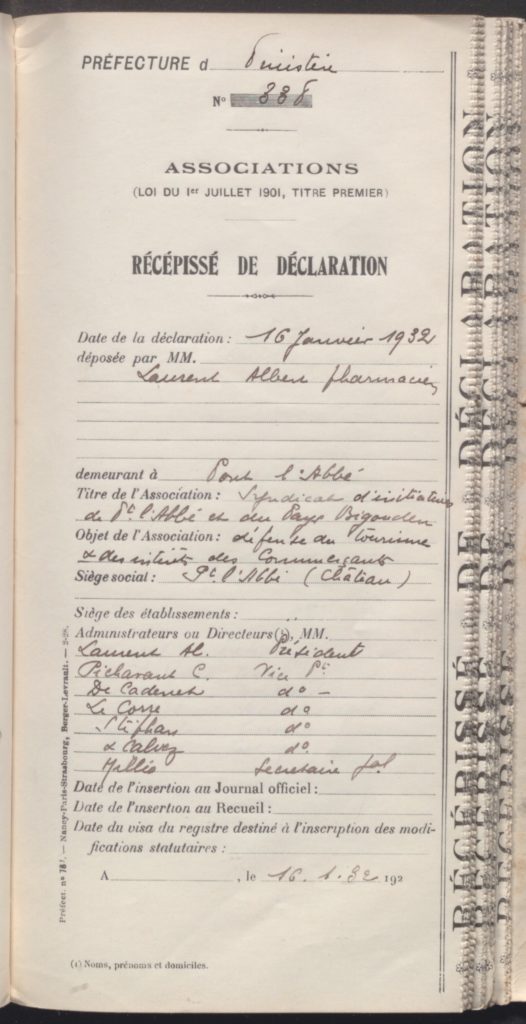 PRÉFECTURE d Finistère
N° 338
ASSOCIATIONS
(LOI DU 1er JUILLET 1901, TITRE PREMIER)
RÉCÉPISSÉ DE DÉCLARATION
Date de la déclaration : 16 Janvier 1932
déposée par MM.
Laurent Albert pharmacien
demeurant à Pont l'Abbé
Titre de l'Association : Syndicat d'initiatives
de Pt l'Abbé et du Pays Bigouden
Objet de l'Association : défense du tourisme
& des intérêts des Commerçants
Siège social : Pt l'Abbé (Château)
Siège des établissements :
Administrateurs ou Directeurs (1), MM.
Laurent Al. Président
Pichavant C. Vice Pt
De Cadenet do –
Le Corre do
Stéphan do
Le Calvez do
Secrétaire gal
Date de l'insertion au Journal officiel :
Date de l'insertion au Recueil :
Date du visa du registre destiné à l'inscription des modi-
fications statutaires :
A , le 16. 1. 32 192
(1) Noms, prénoms et domiciles.
Préfect. n° — Nancy-Paris-Strasbourg, Berger-Levrault. —
RÉCÉPISSÉ DE DÉCLARATION